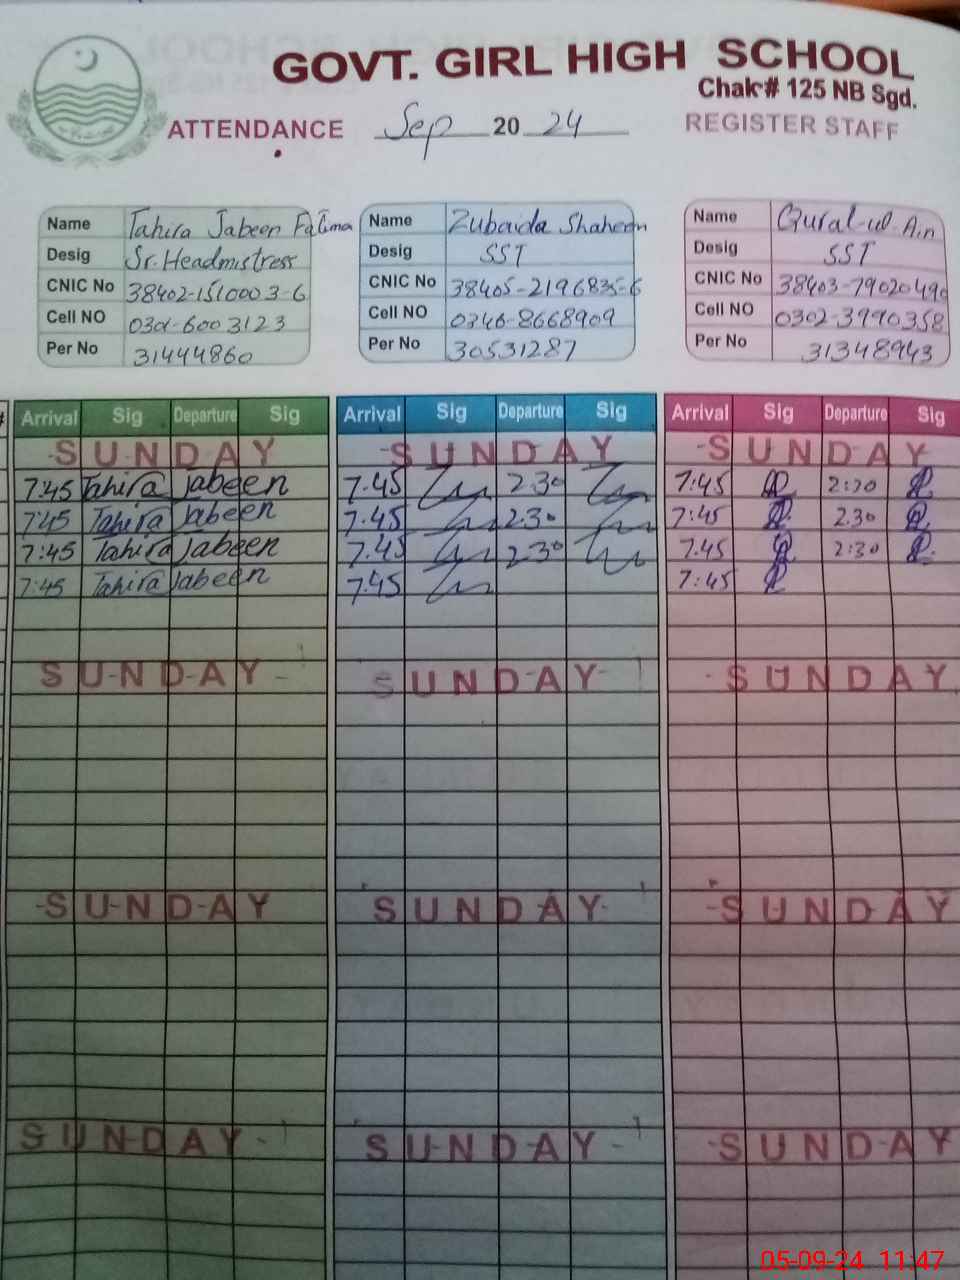 GOVT. GIRL HIGH SCHOOL
Chak# 125 NB Sgd.
ATTENDANCE Sep 20 24 REGISTER STAFF
Name Tahira Jabeen Fatima
Desig Sr. Headmistress
CNIC No 38402-1510003-6
Cell NO 0301-6003123
Per No 31444860
Name Zubaida Shaheen
Desig SST
CNIC No 38405-2196835-6
Cell NO 0346-8668909
Per No 30531287
Name Qurat-ul-Ain
Desig SST
CNIC No 38403-7902049
Cell NO 0302-3990358
Per No 31348943
# Arrival Sig Departure Sig Arrival Sig Departure Sig Arrival Sig Departure Sig
SUNDAY SUNDAY SUNDAY
7:45 Tahira Jabeen 7.45 2.30 7:45 2:30
7:45 Tahira Jabeen 7.45 2.30 7:45 2.30
7:45 Tahira Jabeen 7.45 2.30 7.45 2:30
7:45 Tahira Jabeen 7.45 7:45
SUNDAY SUNDAY SUNDAY
SUNDAY SUNDAY SUNDAY
SUNDAY SUNDAY SUNDAY
05-09-24 11:47